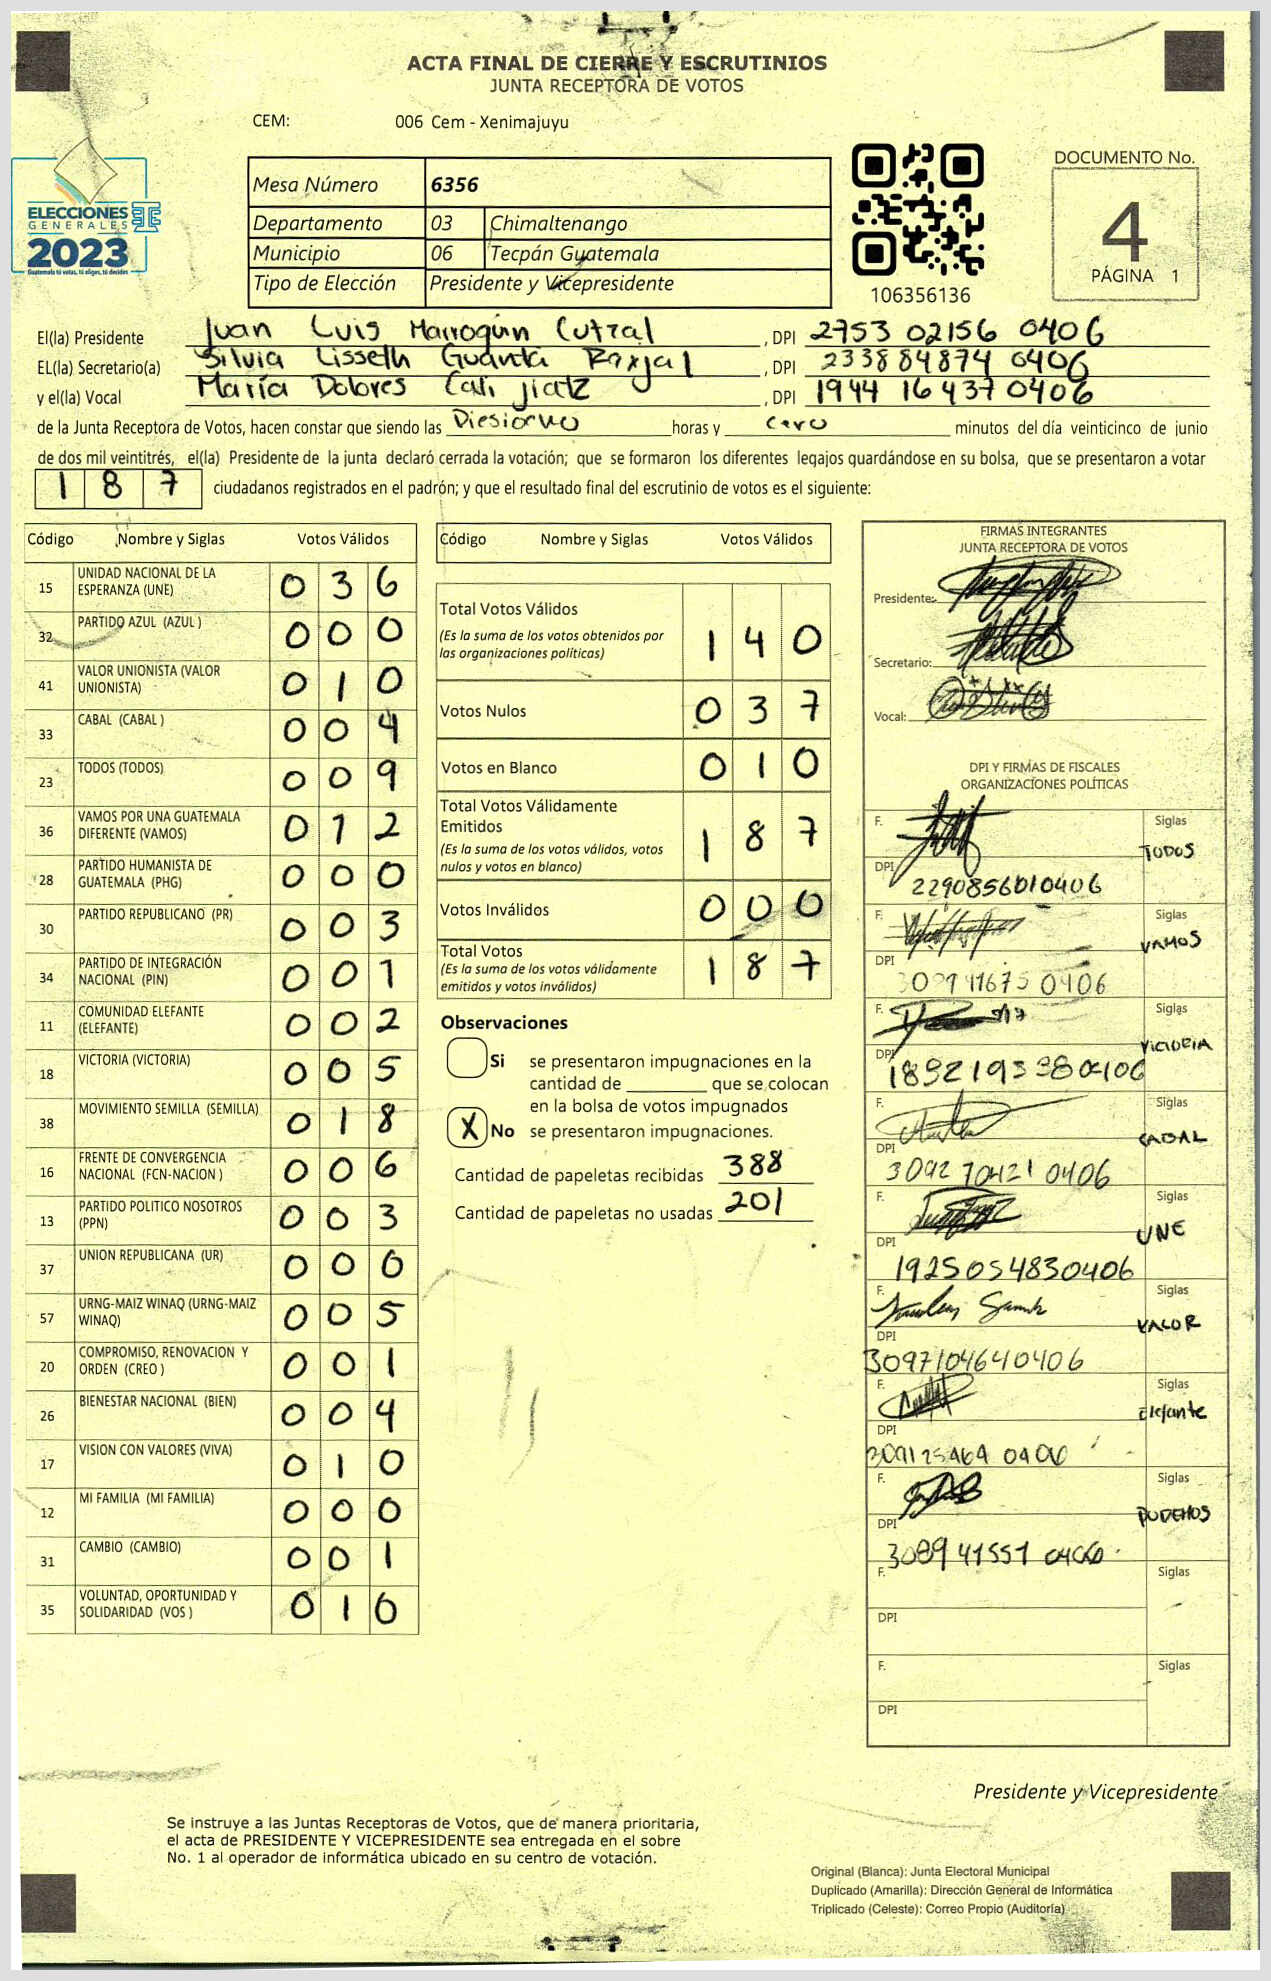 ACTA FINAL DE CIERRE Y ESCRUTINIOS
JUNTA RECEPTORA DE VOTOS
CEM: 006 Cem - Xenimajuyu
ELECCIONES
GENERALES
2023
Guatemala tú votas, tú eliges, tú decides
Mesa Número 6356
Departamento 03 Chimaltenango
Municipio 06 Tecpán Guatemala
Tipo de Elección Presidente y Vicepresidente
106356136
DOCUMENTO No.
4
PÁGINA 1
El(la) Presidente Juan Luis Marroquin Cutzal , DPI 2753 02156 0406
EL(la) Secretario(a) Silvia Lisseth Guanta Raxjal , DPI 233884874 0406
y el(la) Vocal María Dolores Cali Jiatz , DPI 1944 16437 0406
de la Junta Receptora de Votos, hacen constar que siendo las Diesiorho horas y cero minutos del día veinticinco de junio
de dos mil veintitrés, el(la) Presidente de la junta declaró cerrada la votación; que se formaron los diferentes legajos guardándose en su bolsa, que se presentaron a votar
187 ciudadanos registrados en el padrón; y que el resultado final del escrutinio de votos es el siguiente:
Código Nombre y Siglas Votos Válidos
15 UNIDAD NACIONAL DE LA ESPERANZA (UNE) 036
32 PARTIDO AZUL (AZUL ) 000
41 VALOR UNIONISTA (VALOR UNIONISTA) 010
33 CABAL (CABAL ) 004
23 TODOS (TODOS) 009
36 VAMOS POR UNA GUATEMALA DIFERENTE (VAMOS) 012
28 PARTIDO HUMANISTA DE GUATEMALA (PHG) 000
30 PARTIDO REPUBLICANO (PR) 003
34 PARTIDO DE INTEGRACIÓN NACIONAL (PIN) 001
11 COMUNIDAD ELEFANTE (ELEFANTE) 002
18 VICTORIA (VICTORIA) 005
38 MOVIMIENTO SEMILLA (SEMILLA) 018
16 FRENTE DE CONVERGENCIA NACIONAL (FCN-NACION ) 006
13 PARTIDO POLITICO NOSOTROS (PPN) 003
37 UNION REPUBLICANA (UR) 000
57 URNG-MAIZ WINAQ (URNG-MAIZ WINAQ) 005
20 COMPROMISO, RENOVACION Y ORDEN (CREO ) 001
26 BIENESTAR NACIONAL (BIEN) 004
17 VISION CON VALORES (VIVA) 010
12 MI FAMILIA (MI FAMILIA) 000
31 CAMBIO (CAMBIO) 001
35 VOLUNTAD, OPORTUNIDAD Y SOLIDARIDAD (VOS ) 010
Código Nombre y Siglas Votos Válidos
Total Votos Válidos 140
(Es la suma de los votos obtenidos por
las organizaciones políticas)
Votos Nulos 037
Votos en Blanco 010
Total Votos Válidamente
Emitidos 187
(Es la suma de los votos válidos, votos
nulos y votos en blanco)
Votos Inválidos 000
Total Votos 187
(Es la suma de los votos válidamente
emitidos y votos inválidos)
Observaciones
Si se presentaron impugnaciones en la
cantidad de ________ que se colocan
en la bolsa de votos impugnados
X No se presentaron impugnaciones.
Cantidad de papeletas recibidas 388
Cantidad de papeletas no usadas 201
FIRMAS INTEGRANTES
JUNTA RECEPTORA DE VOTOS
Presidente:
Secretario:
Vocal:
DPI Y FIRMAS DE FISCALES
ORGANIZACIONES POLÍTICAS
F. Siglas TODOS
DPI 2290856010406
F. Siglas VAMOS
DPI 309741675 0406
F. Siglas VICTORIA
DPI 1892193380406
F. Siglas CABAL
DPI 3092 70421 0406
F. Siglas UNE
DPI 1925054830406
F. Siglas VALOR
DPI 3097104640406
F. Siglas Elefante
DPI 309125464 0406
F. Siglas PODEMOS
DPI 3089 41551 0406
F. Siglas
DPI
F. Siglas
DPI
Presidente y Vicepresidente
Se instruye a las Juntas Receptoras de Votos, que de manera prioritaria,
el acta de PRESIDENTE Y VICEPRESIDENTE sea entregada en el sobre
No. 1 al operador de informática ubicado en su centro de votación.
Original (Blanca): Junta Electoral Municipal
Duplicado (Amarilla): Dirección General de Informática
Triplicado (Celeste): Correo Propio (Auditoría)